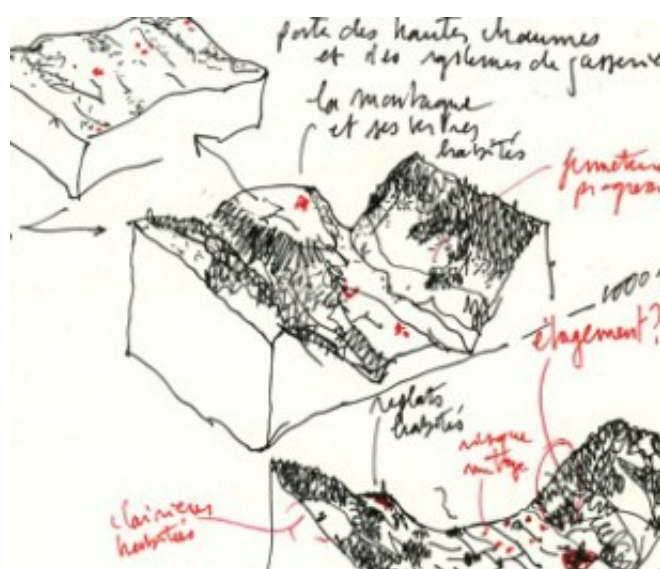 porte des hautes chaumes
et des systèmes de
la montagne
et ses tertres
habités
fermeture
progress
1000
étagement?
replats
habités
risque
mitage
clairières
habitées